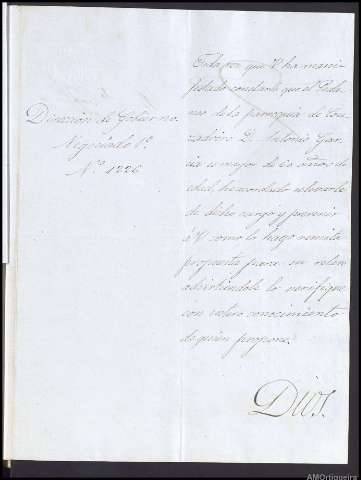 Dirección de Gobierno.
Negociado 1º
Nº 1226
Toda vez que V. ha mani-
festado constarle que el Peda-
neo de la parroquia de Cou-
zadoiro D. Antonio Gar-
cia es mayor de 60 años de
edad, he acordado relevarle
de dicho cargo y prevenir
á V. como lo hago remita
propuesta para su
advirtiéndole lo verifique
con entero conocimiento
de quien propone.
Dios.
AMOrtigueira